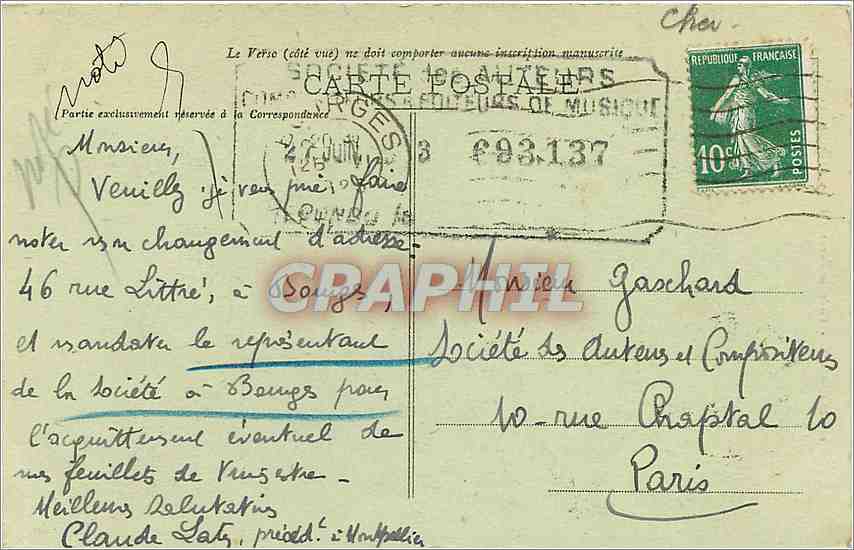 Cher.
noté
Le Verso (côté vue) ne doit comporter aucune inscription manuscrite
CARTE POSTALE
Partie exclusivement réservée à la Correspondance
SOCIÉTÉ des AUTEURS
COMPOSITEURS & EDITEURS DE MUSIQUE
BOURGES
JUIN
693137
REÇU
RÉPUBLIQUE FRANÇAISE
10c
POSTES
Monsieur,
Veuillez je vous prie faire
noter mon changement d'adresse -
46 rue Littré, à Bourges,
et mandater le représentant
de la Société à Bourges pour
l'acquittement éventuel de
mes feuillets de
Meilleures Salutations
Claude précédt à Montpellier
CPAPHIL
Monsieur Gaschard
Société des Auteurs et Compositeurs
10 - rue Chaptal 10
Paris